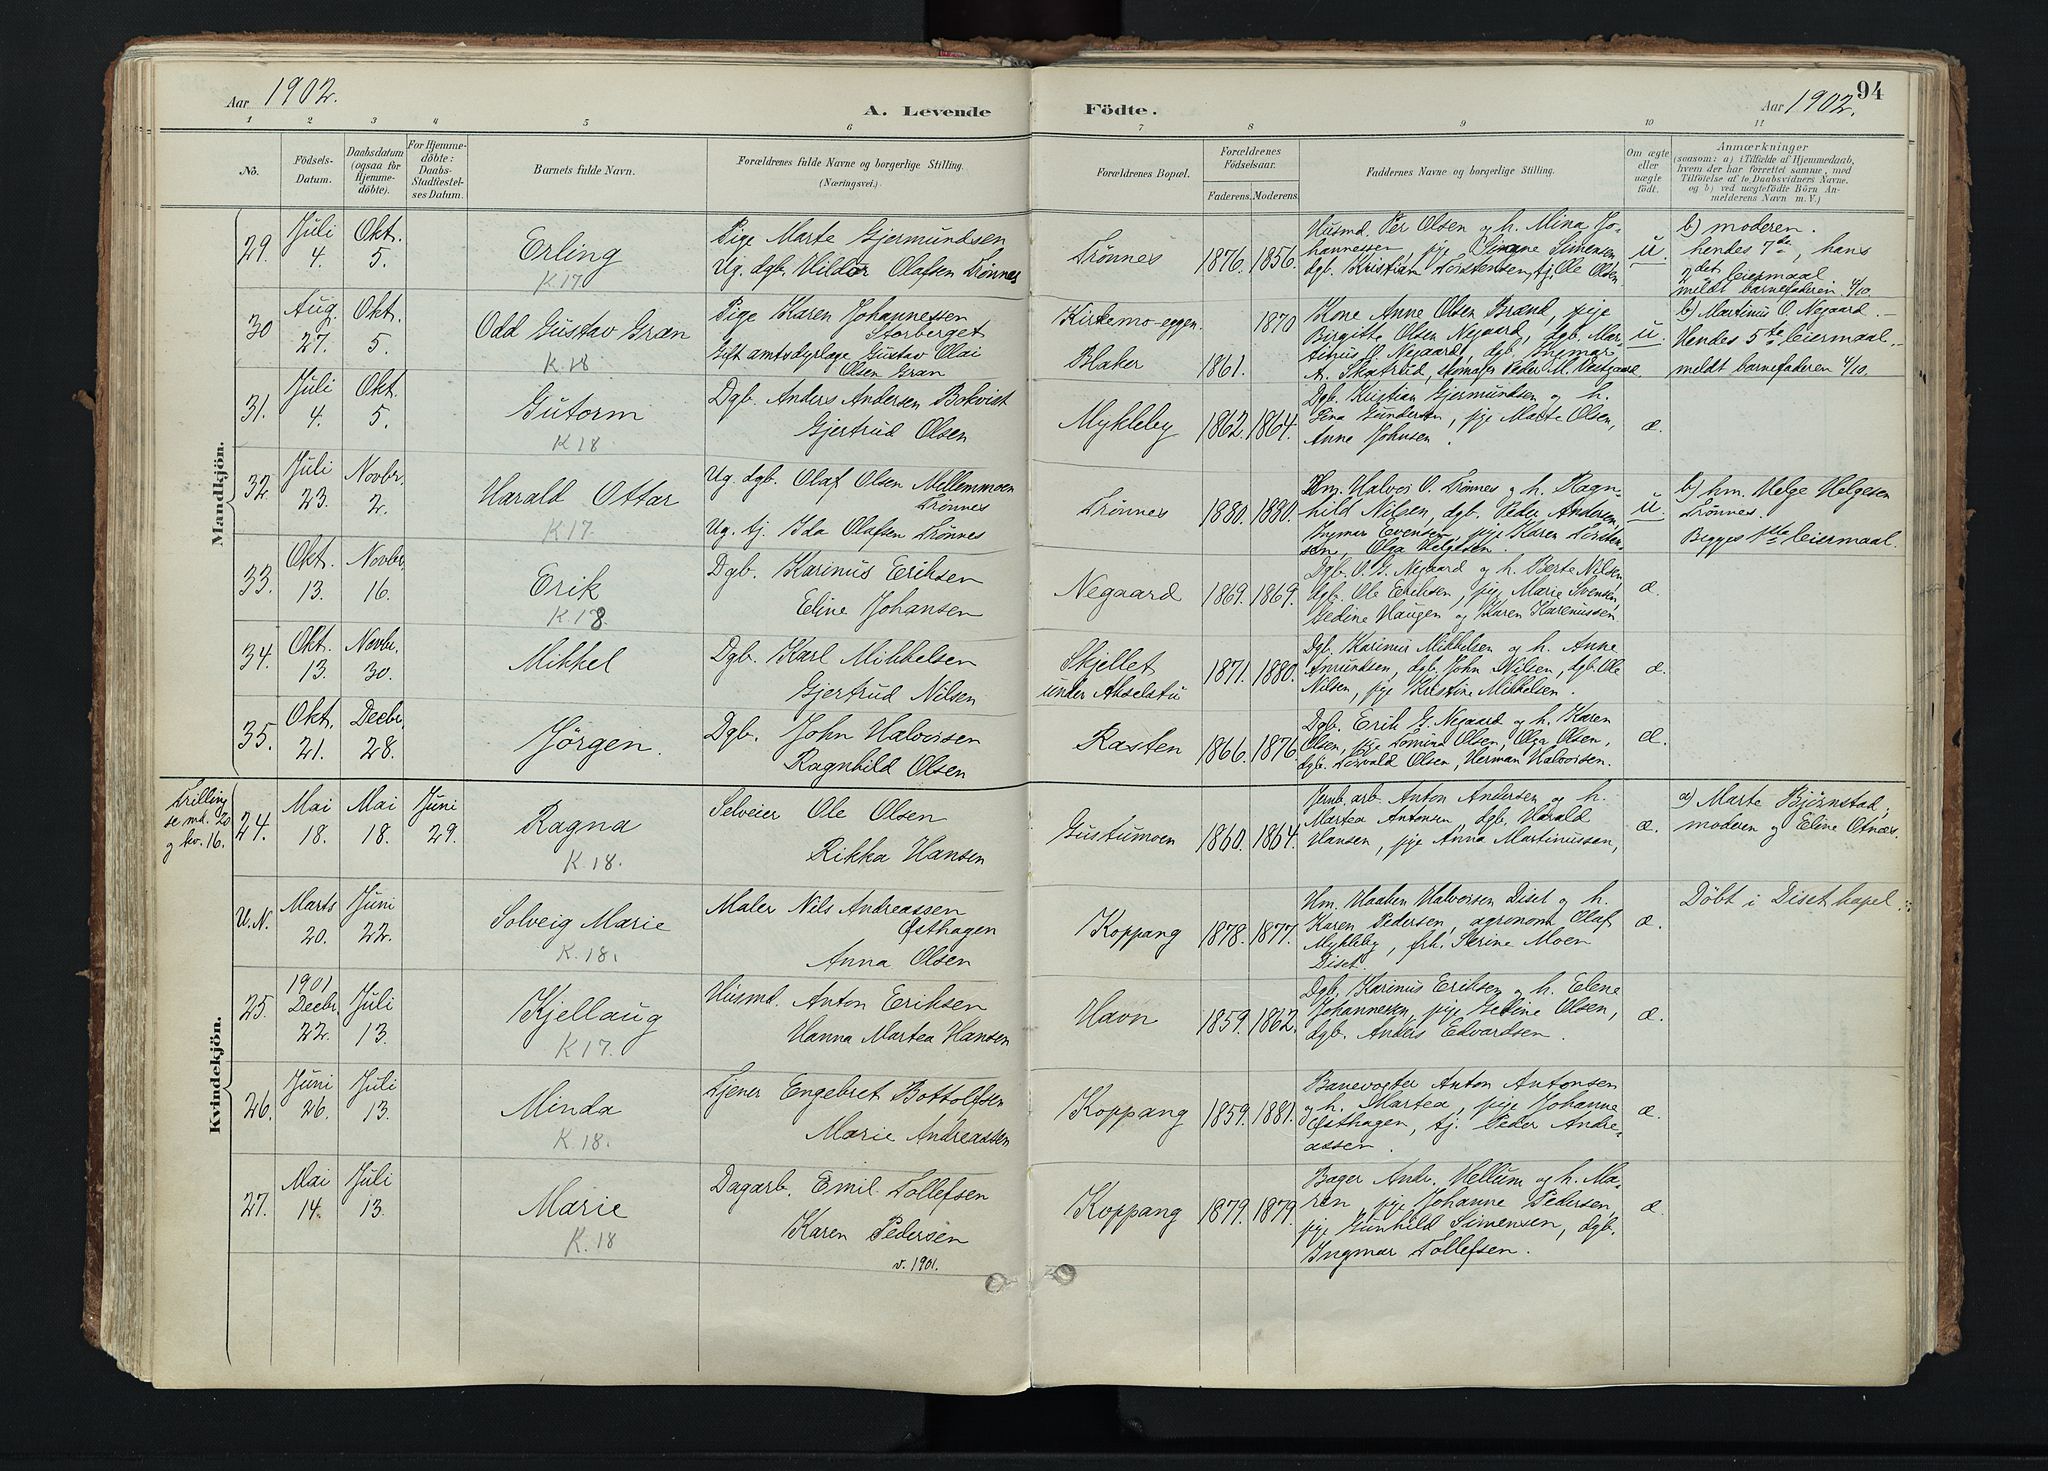 Aar 1902.
A. Levende
Födte.
Aar 1902.
94
1 2 3 4 5 6 7 8 9 10 11
No.
Födsels-
Datum.
Daabsdatum
(ogsaa for
Hjemme-
döbte).
For Hjemme-
döbte:
Daabs-
Stadfæstel-
ses Datum.
Barnets fulde Navn.
Forældrenes fulde Navne og borgerlige Stilling.
(Næringsvei.)
Forældrenes Bopæl.
Forældrenes
Födselsaar.
Faderens. Moderens.
Faddernes Navne og borgerlige Stilling.
Om ægte
eller
uægte
födt.
Anmærkninger
(saasom: a) i Tilfælde af Hjemmedaab,
hvem der har forrettet samme, med
Tilföielse af to Daabsvidners Navne,
og b) ved uægtefödte Börn An-
melderens Navn m. V.)
Mandkjön.
29.
Juli
4.
Okt.
5.
Erling
K 17
Pige Marte Gjermundsen
Ug. dgb. Vildor Olafsen Trønnes
Trønnes
1876. 1856.
Husmd. Per Olsen og h. Mina Jo-
hannessen, pige Simensen,
dgb. Kristian Torstensen, tj. Ole Olsen
u.
b) moderen.
hendes 7de, hans
2det leiermaal
meldt barnefaderen 4/10
30
Aug.
27.
Okt.
5.
Odd Gustav Gran
K. 18
Pige Karen Johannessen
Storberget
Gift amtsdyrlæge Gustav Olai
Olsen Gran
Kirkemo-eggen.
Blaker
1861. 1870
Kone Anne Olsen Brænd, pige
Birgitte Olsen Negaard, dgb. Mar-
tinus O. Negaard, dgb. Ingmar
A. Skjøtrud, Peder M. Vestgaard.
u.
b) Martinus O. Negaard.
Hendes 5te leiermaal.
meldt barnefaderen 4/10.
31.
Juli
4.
Okt.
5.
Gutorm
K 18
Dgb. Anders Andersen Bokvist
Gjertrud Olsen
Mykleby
1862. 1864.
Dgb. Kristian Gjermundsen og h.
Lina Gundersen, pige Marte Olsen,
Anne Johnsen.
æ.
32.
Juli
23.
Novbr.
2.
Harald Ottar
K 17.
Ug. dgb. Olaf Olsen Mellemmoen
Trønnes
Ug. tj. Ida Olafsen Trønnes
Trønnes
1880. 1880.
Hm. Halvor O. Trønnes og h. Ragn-
hild Nilsen, dgb. Peder Andersen,
Ingmar Evensen, pige Karen Torsten-
sen, Olga Helgesen.
u.
b) hm. Helge Helgesen
Trønnes.
Begges 1ste leiermaal.
33.
Okt.
13.
Novbr.
16.
Erik
K 18.
Dgb. Karinus Eriksen
Eline Johansen
Negaard
1869. 1869.
Dgb. O. G. Negaard og h. Berte Nilsen,
dgb. Ole Eriksen, pige Marie Svensen,
Gedine Haugen og Karen Karenussen.
æ.
34.
Okt.
13.
Novbr.
30.
Mikkel
Dgb. Karl Mikkelsen
Gjertrud Nilsen
Skjellet
under Akselstu
1871. 1880.
Dgb. Karinus Mikkelsen og h. Anne
Amundsen, dgb. John Nilsen, dgb. Ole
Nilsen, pige Kristine Mikkelsen.
æ.
35.
Okt.
21.
Decbr.
28.
Jørgen.
Dgb. John Halvorsen
Ragnhild Olsen
Rasten
1866. 1876.
Dgb. Erik G. Negaard og h. Karen
Olsen, pige Tomina Olsen, Olga Olsen,
dgb. Torvald Olsen, Herman Halvorsen.
æ.
Kvindekjön.
Trilling
se mk. 20
og kv. 16.
24.
Mai
18.
Mai
18.
Juni
29.
Ragna
K. 18.
Selveier Ole Olsen
Rikka Hansen
Gustumoen
1860. 1864.
Jernb. arb. Anton Andersen og h.
Martea Antonsen, dgb. Harald
Hansen, pige Anna Martinussen,
æ.
a) Marte Bjørnstad,
moderen og Eline Otnæs.
U.N.
Marts
20.
Juni
22.
Solveig Marie
K. 18.
Maler Nils Andreassen
Østhagen
Anna Olsen
Koppang
1878. 1877.
Hm. Haaken Halvorsen Diset og h.
Karen Pedersen, agronom Olaf
Mykleby, frk. Serine Moen
Diset.
æ.
Døbt i Diset kapel.
25.
1901
Decbr.
22.
Juli
13.
Kjellaug
K 17.
Husmd. Anton Eriksen
Hanna Martea Hansen
Havn
1859. 1862.
Dgb. Karinus Eriksen og h. Elene
Johannesen, pige Gedine Olsen,
dgb. Anders Edvardsen.
æ.
26.
Juni
26.
Juli
13.
Minda
K. 18.
Tjener Engebret Bottolfsen
Marie Andreassen
Koppang
1859. 1881.
Banevogter Anton Antonsen
og h. Martea, pige Johanne
Østhagen, tj. Peder Andre-
assen.
æ.
27.
Mai
14.
Juli
13.
Marie
K. 18
Dagarb. Emil Tollefsen
Karen Pedersen
v. 1901.
Koppang
1879. 1879.
Bager Andr. Hellum og h. Ma-
ren, pige Johanne Pedersen,
pige Gunhild Simensen, dgb.
Ingmar Tollefsen.
æ.